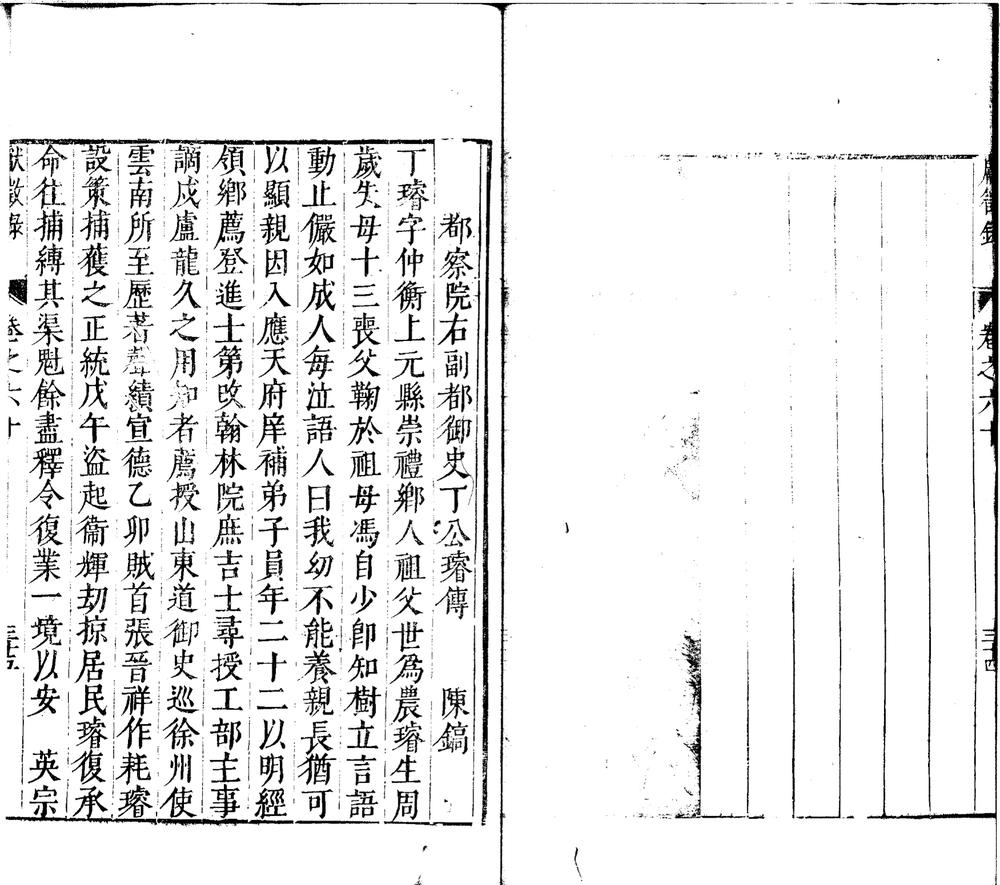 卷之六十
三十四
都察院右副都御史丁公璿傳 陳鎬
丁璿字仲衡上元縣崇禮鄉人祖父世爲農璿生周
歲失母十三喪父鞠於祖母馮自少卽知樹立言語
動止儼如成人每泣語人曰我幼不能養親長猶可
以顯親因入應天府庠補弟子員年二十二以明經
領鄉薦登進士第改翰林院庶吉士尋授工部主事
謫戍盧龍久之用知者薦授山東道御史巡徐州使
雲南所至歷著聲績宣德乙卯賊首張晉祥作耗璿
設策捕獲之正統戊午盜起衞輝劫掠居民璿復承
命往捕縛其渠魁餘盡釋令復業一境以安 英宗
獻徵錄 卷之六十 三十五